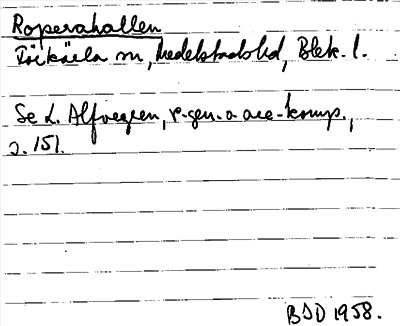 Roperahallen
Tvikäela sn, Medelstads hd, Blek. l.
Se L. Alfvegren, r-gen. o. ack-komp.,
s. 151.
BSD 1958.